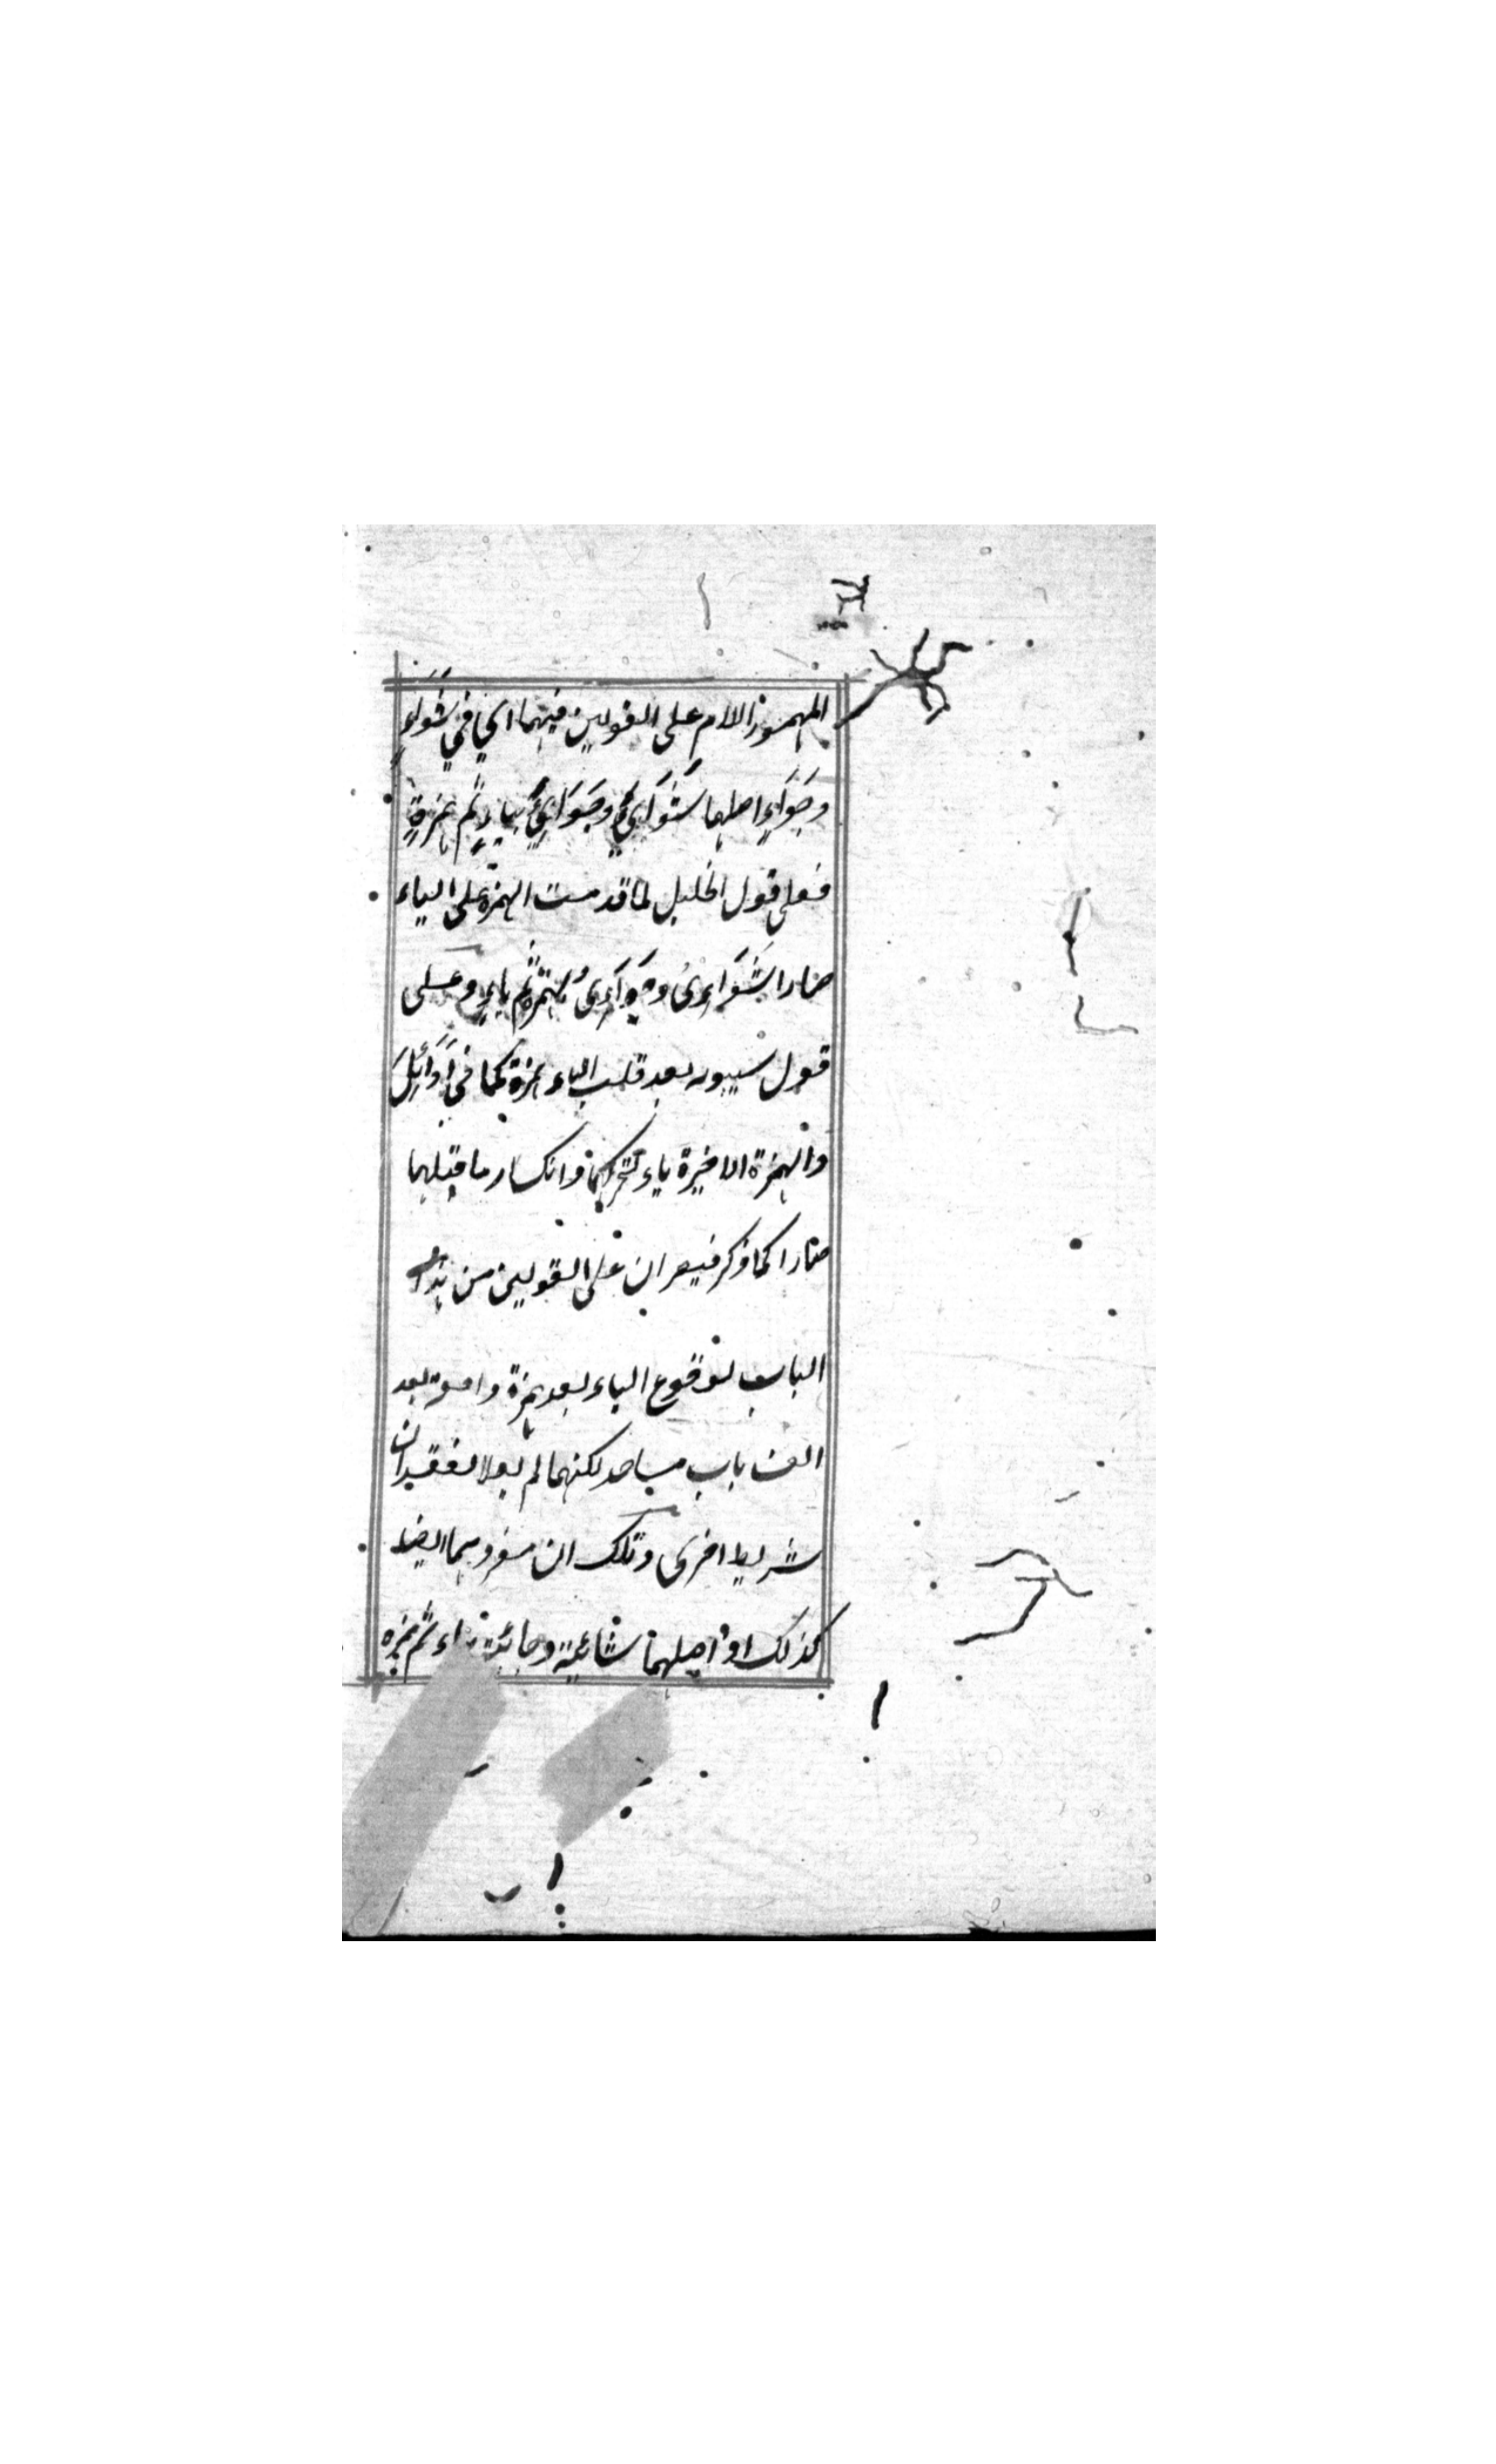 المهموز اللام على القولين فيهما اي في شَوَاءٍ
وجَوَاءٍ اصلهما شَوَايِئُ وجَوَايِئُ بياء ثم بهمزةٍ
فعلى قول الخليل لما قدمت الهمزة على الياء
صارا شَوَائِىُ وجَوَائِىُ بهمزة ثم ياء وعلى
قول سيبويه بعد قلب الياء بهمزة كما في اَوَائِلَ
والهمزة الاخيرة ياء لتحركها وانكسار ما قبلها
صارا كما ذكر فيصران على القولين من هذا
الباب لوقوع الياء بعد همزة واقعة بعد
الف باب مساجد لكنهما لم يعلا لفقدان
شرط اخرى وتلك ان مفردهما ايضا
كذلك اذ اصلهما شائية وجائية بياء ثم بهمزه